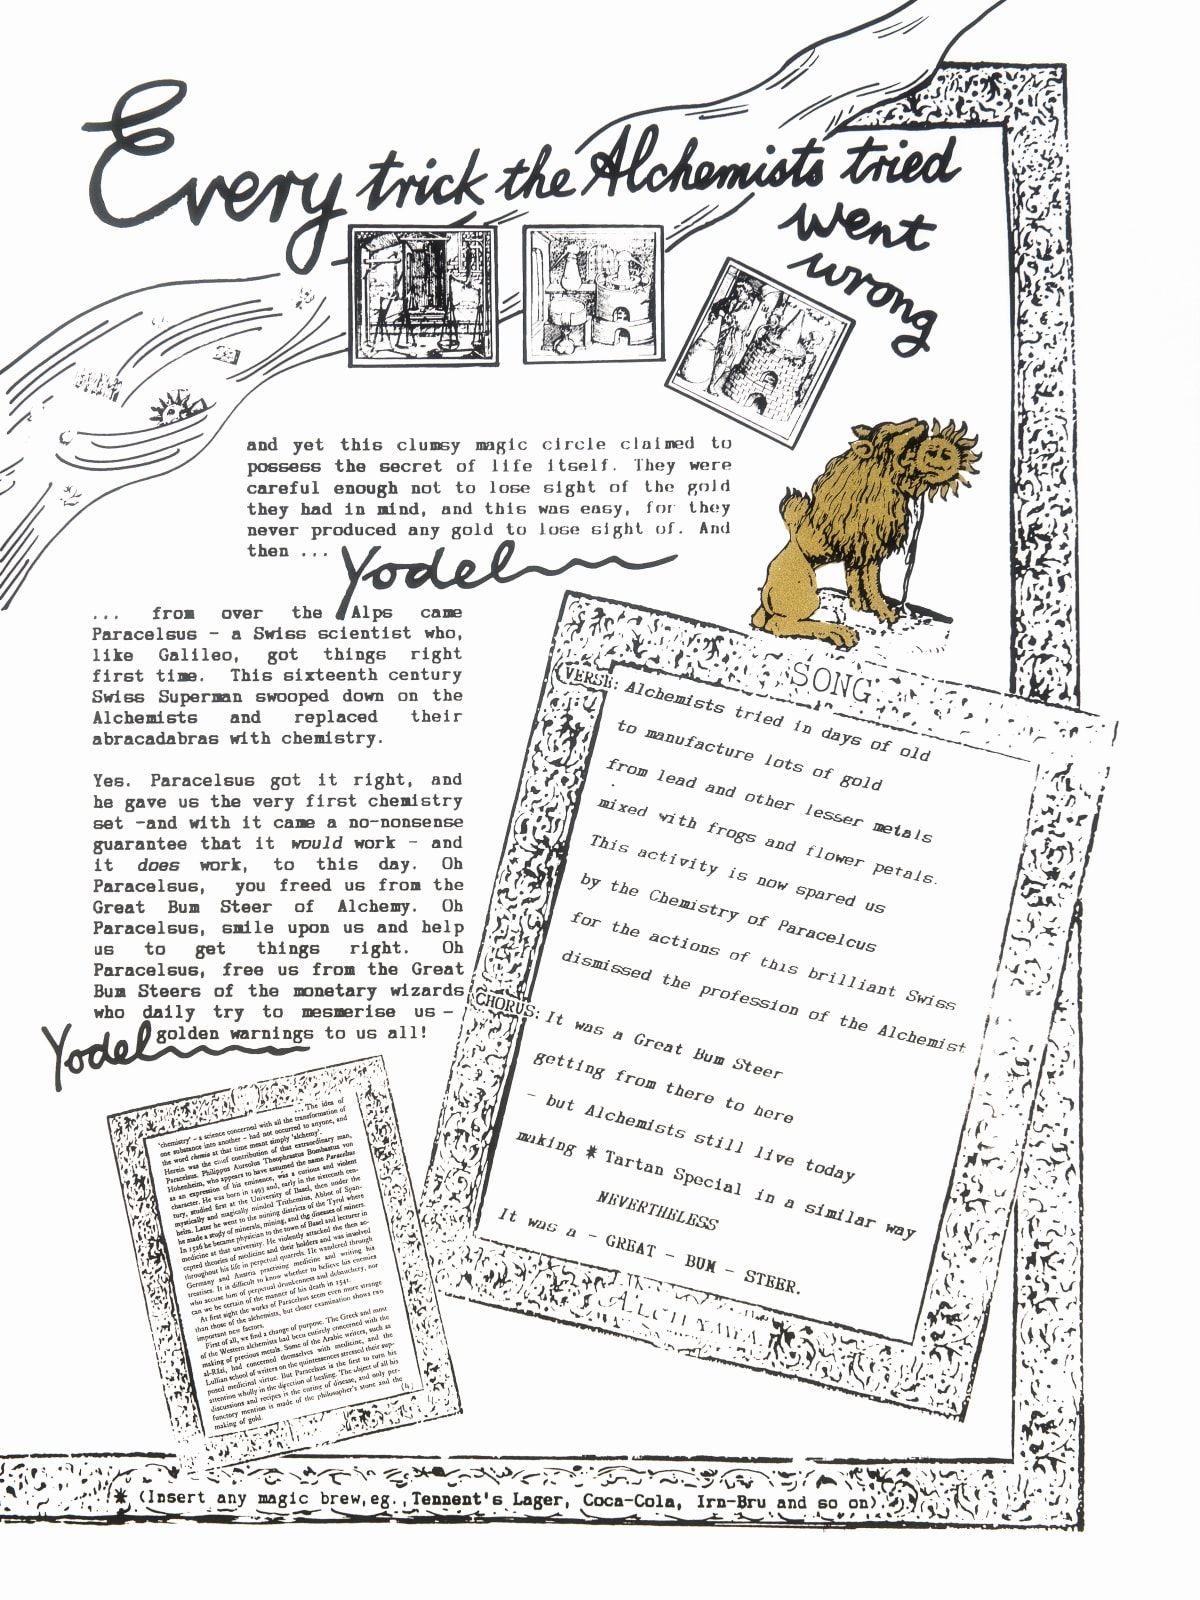 Every trick the Alchemists tried
went
wrong
and yet this clumsy magic circle claimed to
possess the secret of life itself. They were
careful enough not to lose sight of the gold
they had in mind, and this was easy, for they
never produced any gold to lose sight of. And
then ...
Yodel
... from over the Alps came
Paracelsus - a Swiss scientist who,
like Galileo, got things right
first time. This sixteenth century
Swiss Superman swooped down on the
Alchemists and replaced their
abracadabras with chemistry.
Yes. Paracelsus got it right, and
he gave us the very first chemistry
set -and with it came a no-nonsense
guarantee that it would work - and
it does work, to this day. Oh
Paracelsus, you freed us from the
Great Bum Steer of Alchemy. Oh
Paracelsus, smile upon us and help
us to get things right. Oh
Paracelsus, free us from the Great
Bum Steers of the monetary wizards
who daily try to mesmerise us -
golden warnings to us all!
Yodel
SONG
VERSE: Alchemists tried in days of old
to manufacture lots of gold
from lead and other lesser metals
mixed with frogs and flower petals.
This activity is now spared us
by the Chemistry of Paracelcus
for the actions of this brilliant Swiss
dismissed the profession of the Alchemist
CHORUS: It was a Great Bum Steer
getting from there to here
- but Alchemists still live today
making * Tartan Special in a similar way
NEVERTHELESS
It was a - GREAT - BUM - STEER.
The idea of
'chemistry' - a science concerned with all the transformation of
one substance into another - had not occurred to anyone, and
the word chemia at that time meant simply 'alchemy'.
Herein was the chief contribution of that extraordinary man,
Paracelsus. Philippus Aureolus Theophrastus Bombastus von
Hohenheim, who appears to have assumed the name Paracelsus
as an expression of his eminence, was a curious and violent
character. He was born in 1493 and, early in the sixteenth cen-
tury, studied first at the University of Basel, then under the
mystically and magically minded Trithemius, Abbot of Span-
heim. Later he went to the mining districts of the Tyrol where
he made a study of minerals, mining, and the diseases of miners.
In 1526 he became physician to the town of Basel and lecturer in
medicine at that university. He violently attacked the then ac-
cepted theories of medicine and their holders and was involved
throughout his life in perpetual quarrels. He wandered through
Germany and Austria practising medicine and writing his
treatises. It is difficult to know whether to believe his enemies
who accuse him of perpetual drunkenness and debauchery, nor
can we be certain of the manner of his death in 1541.
At first sight the works of Paracelsus seem even more strange
than those of the alchemists, but closer examination shows two
important new factors.
First of all, we find a change of purpose. The Greek and most
of the Western alchemists had been entirely concerned with the
making of precious metals. Some of the Arabic writers, such as
al-Rāzi, had concerned themselves with medicine, and the
Lullian school of writers on the quintessences stressed their sup-
posed medicinal virtue. But Paracelsus is the first to turn his
attention wholly in the direction of healing. The object of all his
discussions and recipes is the curing of disease, and only per-
functory mention is made of the philosopher's stone and the
making of gold.
* (Insert any magic brew,eg., Tennent's Lager, Coca-Cola, Irn-Bru and so on).